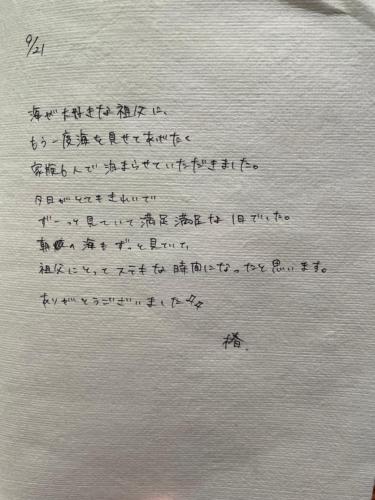 9/21
海が大好きな祖父に、
もう一度海を見せてあげたく
家族6人で泊まらせていただきました。
今日がとてもきれいで
ずーっと見ていて満足満足な1日でした。
の海もずっと見ていて、
祖父にとってステキな時間になったと思います。
ありがとうございました
椿